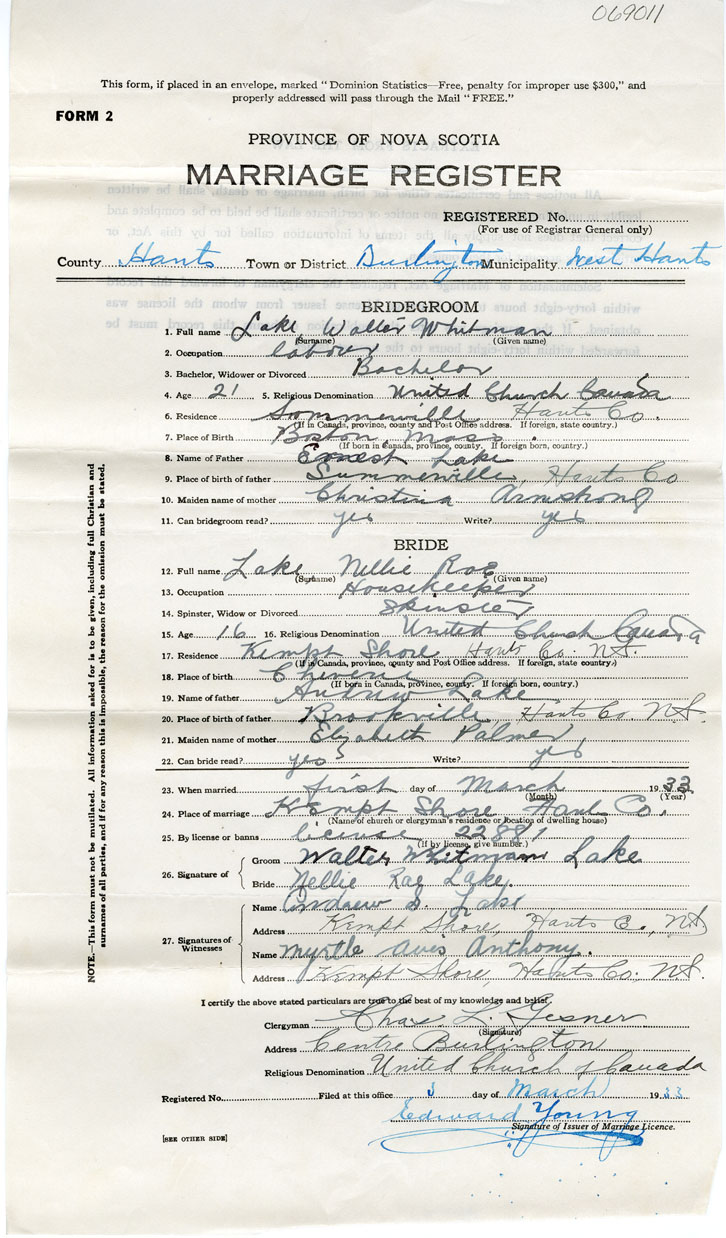 069011
This form, if placed in an envelope, marked "Dominion Statistics—Free, penalty for improper use $300," and
properly addressed will pass through the Mail "FREE."
FORM 2
PROVINCE OF NOVA SCOTIA
MARRIAGE REGISTER
REGISTERED No.
(For use of Registrar General only)
County Hants Town or District Burlington Municipality West Hants
BRIDEGROOM
1. Full name Lake Walter Whitman
(Surname) (Given name)
2. Occupation labour
3. Bachelor, Widower or Divorced Bachelor
4. Age 21 5. Religious Denomination United Church Canada
6. Residence Sommerville Hants Co.
(If in Canada, province, county and Post Office address. If foreign, state country.)
7. Place of Birth Boston, Mass.
(If born in Canada, province, county. If foreign born, country.)
8. Name of Father Ernest Lake
9. Place of birth of father Summerville, Hants Co
10. Maiden name of mother Christina Armstrong
11. Can bridegroom read? yes Write? yes
BRIDE
12. Full name Lake Nellie Rae
(Surname) (Given name)
13. Occupation Housekeeper
14. Spinster, Widow or Divorced Spinster
15. Age 16 16. Religious Denomination United Church Canada
17. Residence Kempt Shore Hants Co. N.S.
(If in Canada, province, county and Post Office address. If foreign, state country.)
18. Place of birth
(If born in Canada, province, county. If foreign born, country.)
19. Name of father Andrew Lake
20. Place of birth of father Brookville, Hants Co. N.S.
21. Maiden name of mother Elizabeth Palmer
22. Can bride read? yes Write? yes
23. When married first day of March 1933
(Month) (Year)
24. Place of marriage Kempt Shore Hants Co.
(Name of church or clergyman's residence or location of dwelling house)
25. By license or banns license 22881
(If by license, give number.)
26. Signature of
Groom Walter Whitmann Lake
Bride Nellie Rae Lake.
27. Signatures of Witnesses
Name Andrew D. Lake
Address Kempt Shore, Hants C., N.S.
Name Myrtle Avis Anthony.
Address Kempt Shore, Hants Co. N.S.
I certify the above stated particulars are true to the best of my knowledge and belief.
Clergyman Chas. L. Gesner
(Signature)
Address Centre Burlington
Religious Denomination United Church of Canada
Registered No. Filed at this office 3 day of March 1933
Edward Young
Signature of Issuer of Marriage Licence.
[SEE OTHER SIDE]
NOTE.—This form must not be mutilated. All information asked for is to be given, including full Christian and
surnames of all parties, and if for any reason this is impossible, the reason for the omission must be stated.